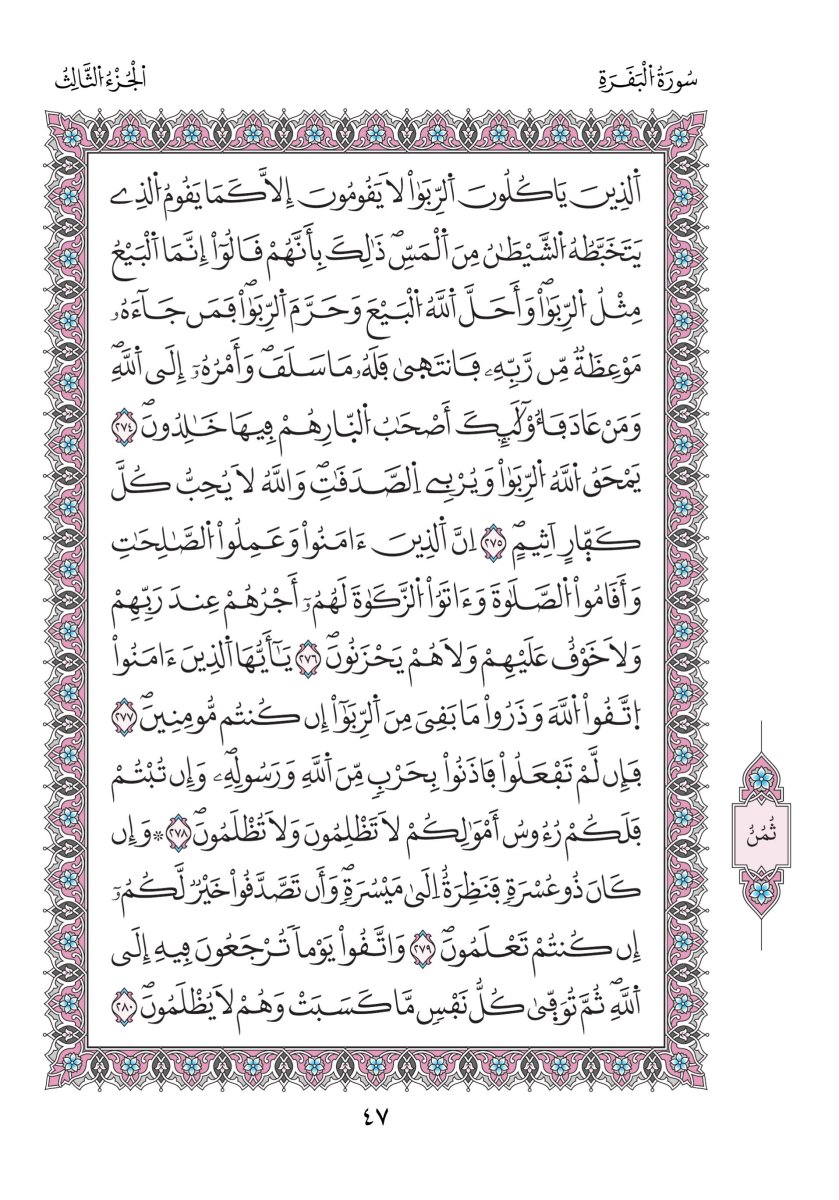 سُورَةُ الْبَقَرَةِ
الْجُزْءُ الثَّالِثُ
اَلذِينَ يَاكُلُونَ اَلرِّبَوٰاْ لَا يَقُومُونَ إِلَّا كَمَا يَقُومُ اُلذِے
يَتَخَبَّطُهُ اُلشَّيْطَٰنُ مِنَ اَلْمَسِّۖ ذَٰلِكَ بِأَنَّهُمْ قَالُوٓاْ إِنَّمَا اَلْبَيْعُ
مِثْلُ اُلرِّبَوٰاْۖ وَأَحَلَّ اَللَّهُ اُلْبَيْعَ وَحَرَّمَ اَلرِّبَوٰاْۖ فَمَن جَآءَهُۥ
مَوْعِظَةٞ مِّن رَّبِّهِۦ فَانتَهَىٰ فَلَهُۥ مَا سَلَفَۖ وَأَمْرُهُۥٓ إِلَى اَللَّهِۖ
وَمَنْ عَادَ فَأُوْلَٰٓئِكَ أَصْحَٰبُ اُلنّ۪ارِ هُمْ فِيهَا خَٰلِدُونَۖ ٢٧٤
يَمْحَقُ اُللَّهُ اُلرِّبَوٰاْ وَيُرْبِے اِلصَّدَقَٰتِۖ وَاللَّهُ لَا يُحِبُّ كُلَّ
كَفّ۪ارٍ اَثِيمٍۖ ٢٧٥ اِنَّ اَلذِينَ ءَامَنُواْ وَعَمِلُواْ اُلصَّٰلِحَٰتِ
وَأَقَامُواْ اُلصَّلَوٰةَ وَءَاتَوُاْ اُلزَّكَوٰةَ لَهُمُۥٓ أَجْرُهُمْ عِندَ رَبِّهِمْ
وَلَا خَوْفٌ عَلَيْهِمْ وَلَا هُمْ يَحْزَنُونَۖ ٢٧٦ يَٰٓأَيُّهَا اَلذِينَ ءَامَنُواْ
اُ۪تَّقُواْ اُللَّهَ وَذَرُواْ مَا بَقِيَ مِنَ اَلرِّبَوٰٓاْ إِن كُنتُم مُّومِنِينَۖ ٢٧٧
فَإِن لَّمْ تَفْعَلُواْ فَاذَنُواْ بِحَرْبٖ مِّنَ اَللَّهِ وَرَسُولِهِۦۖ وَإِن تُبْتُمْ
فَلَكُمْ رُءُوسُ أَمْوَٰلِكُمْ لَا تَظْلِمُونَ وَلَا تُظْلَمُونَۖ ٢٧٨ * وَإِن
ثُمُنُ
كَانَ ذُو عُسْرَةٖ فَنَظِرَةٌ اِلَىٰ مَيْسُرَةٖۖ وَأَن تَصَّدَّقُواْ خَيْرٞ لَّكُمُۥٓ
إِن كُنتُمْ تَعْلَمُونَۖ ٢٧٩ وَاتَّقُواْ يَوْماٗ تُرْجَعُونَ فِيهِ إِلَى
اَللَّهِۖ ثُمَّ تُوَفّ۪ىٰ كُلُّ نَفْسٖ مَّا كَسَبَتْ وَهُمْ لَا يُظْلَمُونَۖ ٢٨٠
٤٧